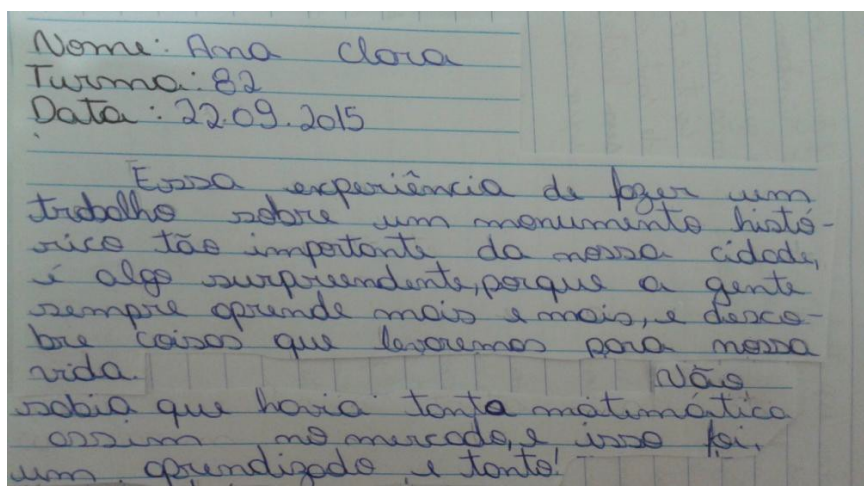 Nome: Ana Clara
Turma: 82
Data: 22.09.2015
Essa experiência de fazer um
trabalho sobre um monumento histó-
rico tão importante da nossa cidade,
é algo surpreendente, porque a gente
sempre aprende mais e mais, e desco-
bre coisas que levaremos para nossa
vida. Não
sabia que havia tanta matemática
assim no mercado, e isso foi,
um aprendizado e tanto!